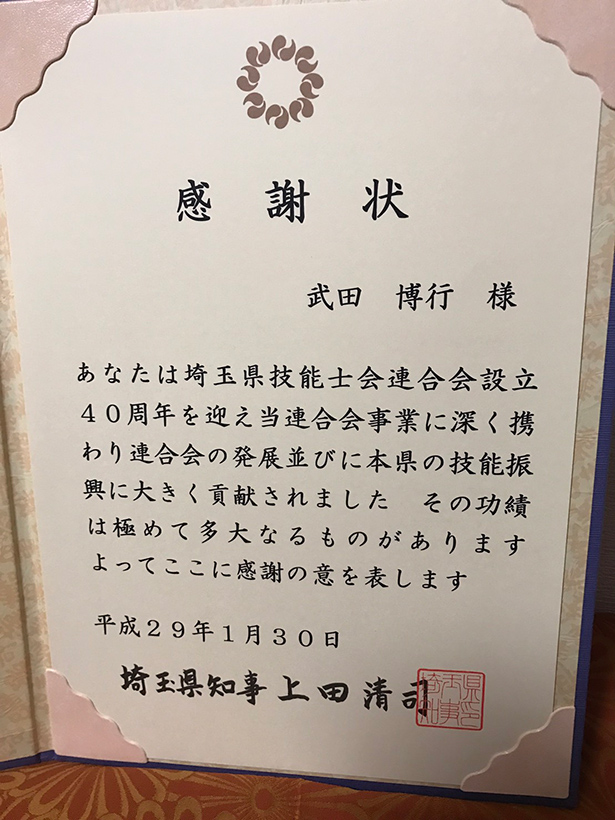 感謝状
武田 博行 様
あなたは埼玉県技能士会連合会設立
40周年を迎え当連合会事業に深く携
わり連合会の発展並びに本県の技能振
興に大きく貢献されました その功績
は極めて多大なるものがあります
よってここに感謝の意を表します
平成29年1月30日
埼玉県知事 上田清司
埼玉県知事之印